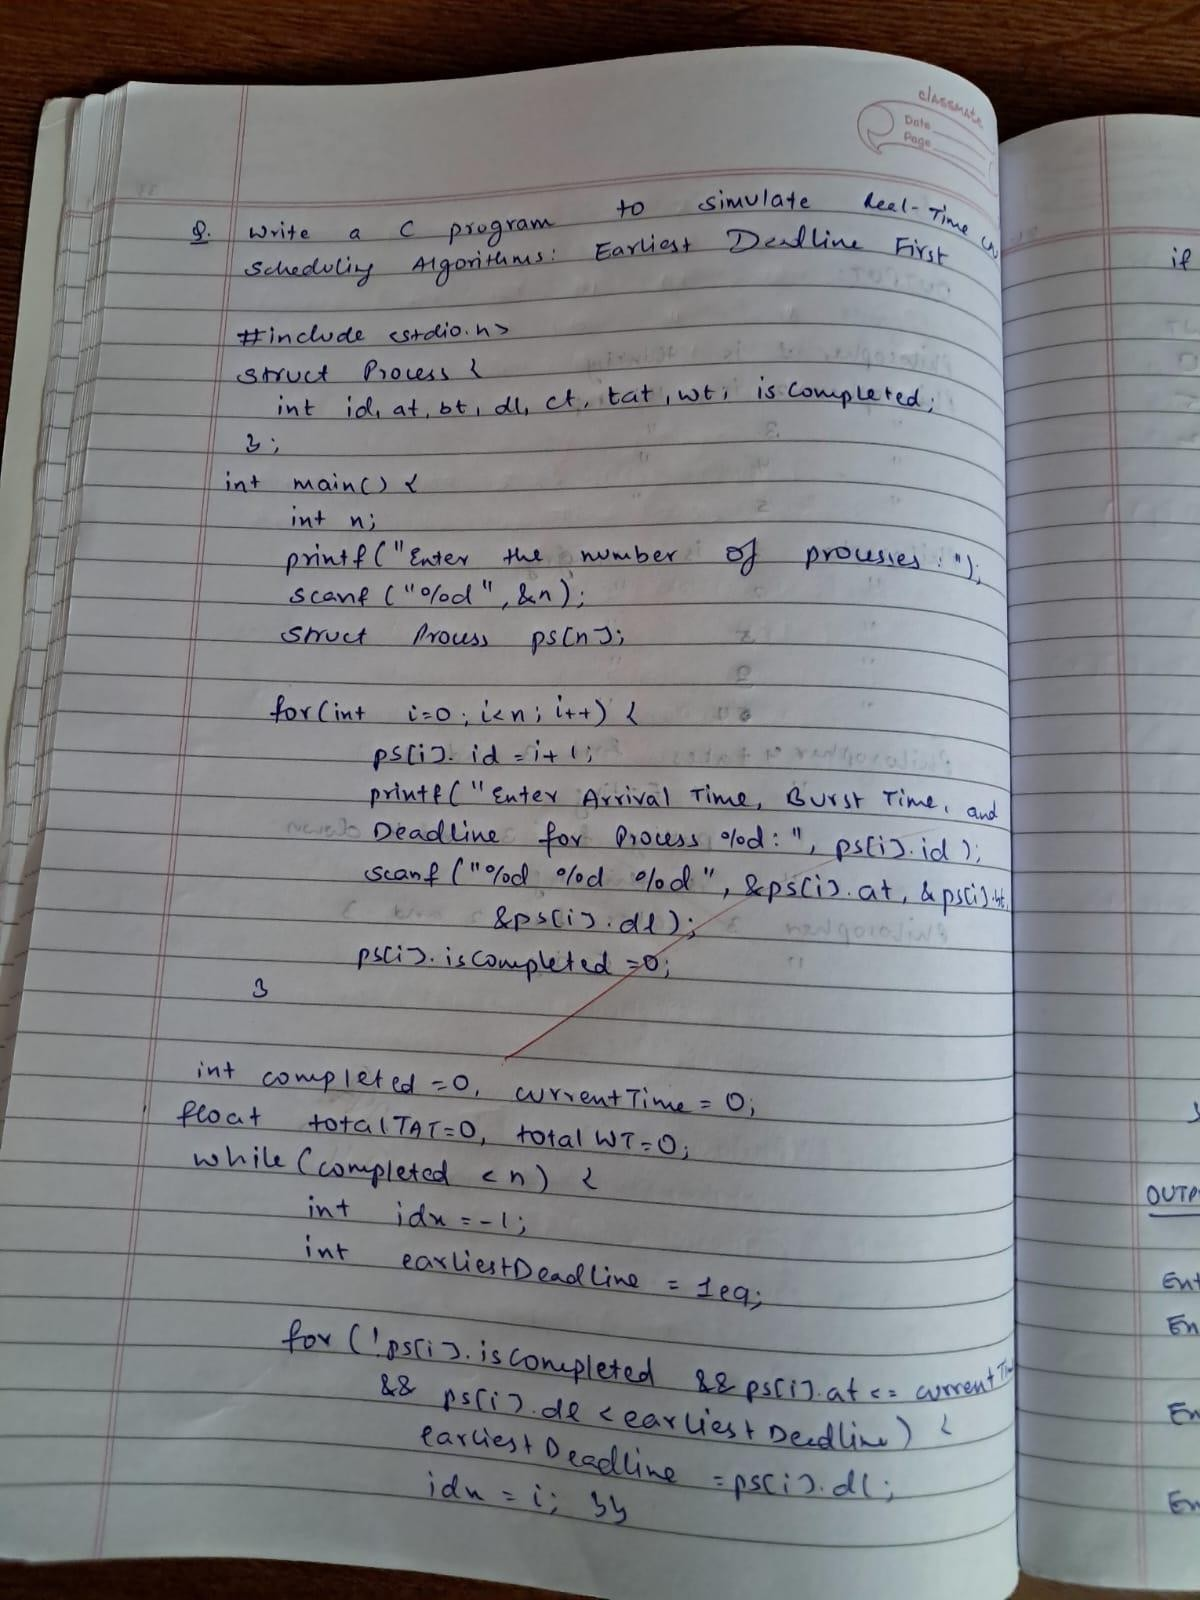 classmate
Date
Page
Q. Write a C program to simulate Real-Time
Scheduling Algorithms: Earliest Deadline First
#include <stdio.h>
struct Process {
int id, at, bt, dl, ct, tat, wt, is completed;
};
int main() {
int n;
printf("Enter the number of processes: ");
scanf ("%d", &n);
struct Process ps[n];
for(int i=0; i<n; i++) {
ps[i].id = i+1;
printf("Enter Arrival Time, Burst Time, and
Deadline for Process %d: ", ps[i].id);
scanf ("%d %d %d", &ps[i].at, &ps[i].bt,
&ps[i].dl);
ps[i].isCompleted =0;
}
int completed =0, currentTime = 0;
float totalTAT=0, total WT=0;
while (completed < n) {
int idx = -1;
int earliestDeadline = 1e9;
for (!ps[i].isCompleted && ps[i].at <= currentTime
&& ps[i].dl < earliestDeadline) {
earliestDeadline = ps[i].dl;
idx = i; }}
if
OUTP
Ent
En
En
En